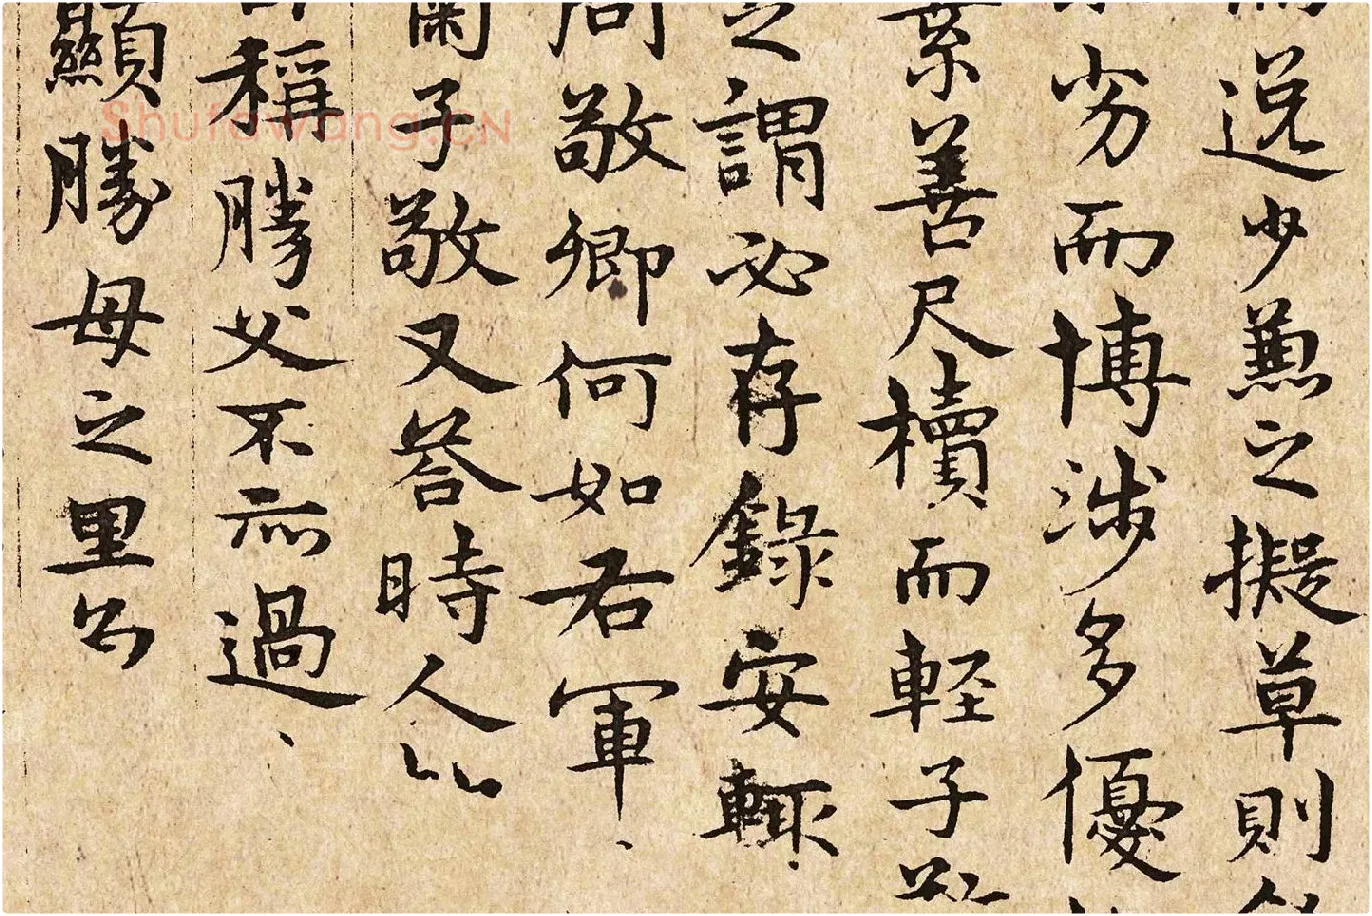 逸少兼之擬草則
劣而博涉多優
素善尺牘而輕子敬
之謂必存錄安輒
問敬卿何如右軍
爾子敬又答時人
稱勝父不亦過
顯勝母之里
Shufawang.CN